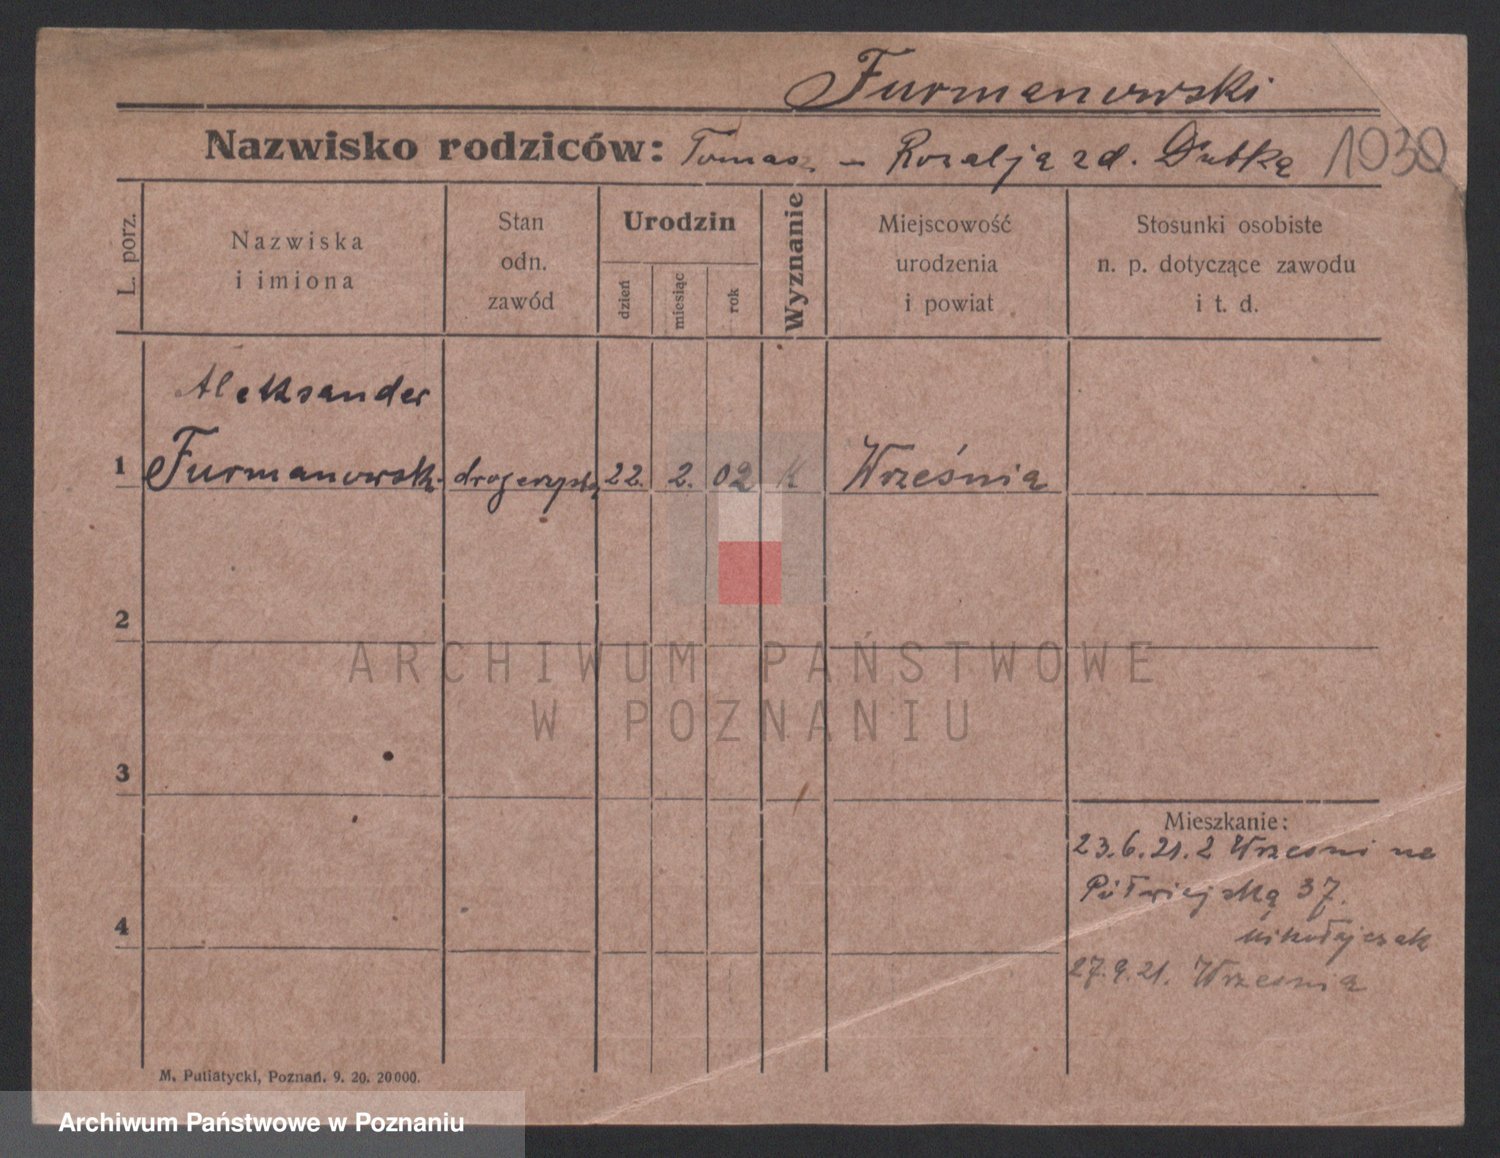 Furmanowski
Nazwisko rodziców: Tomasz - Rozalja zd. Dutka 1030
L. porz.
Nazwiska
i imiona
Stan
odn.
zawód
Urodzin
dzień
miesiąc
rok
Wyznanie
Miejscowość
urodzenia
i powiat
Stosunki osobiste
n. p. dotyczące zawodu
i t. d.
Aleksander
1 Furmanowsk. drogerzysta 22. 2. 02 K Września
2
ARCHIWUM PAŃSTWOWE
W POZNANIU
3
Mieszkanie:
23.6.21. z Wrzesni na
Półwiejską 37.
4
Mikołajczak
27.9.21. Wrzesnia
M. Putiatycki, Poznań. 9. 20. 20000.
Archiwum Państwowe w Poznaniu